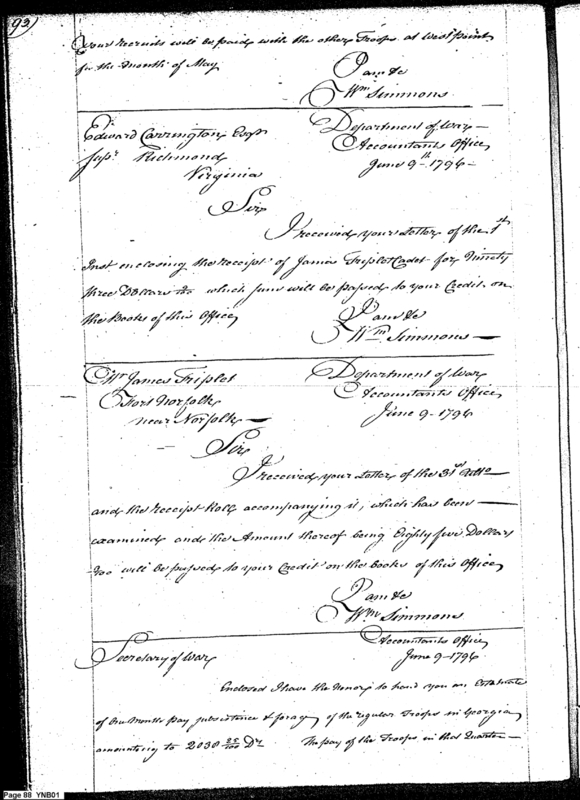 93
your recruits will be paid with the other Troops at West point
for the month of May
I am &c
Wm Simmons
Edward Carrington Esqr
Supr Richmond
Virginia
Department of War
Accountants Office
June 9th 1796
Sir
I received your Letter of the 1st
Inst enclosing the receipt of James Triplet Cadet for Ninety
three Dollars which sum will be passed to your Credit on
the Books of this Office
I am &c
Wm Simmons
Mr James Triplet
Fort Norfolk
near Norfolk
Department of War
Accountants Office
June 9 1796
Sir
I received your Letter of the 31st Ulto
and the receipt Roll accompanying it, which has been
examined and the Amount thereof being Eighty five Dollars
will be passed to your Credit on the Books of this Office
I am &c
Wm Simmons
Secretary of War
Accountants Office
June 9 1796
Enclosed I have the honor to hand you an Estimate
of One Months pay subsistence & forage of the regular Troops in Georgia
amounting to 2030 Drs The pay of the Troops in that Quarter
Page 88 YNB01